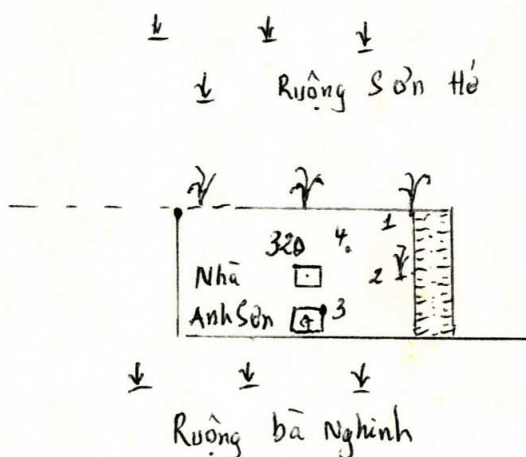 Ruộng Sơn Hé
1
320 4
Nhà 2
Anh Sơn 3
Ruộng bà Nghinh